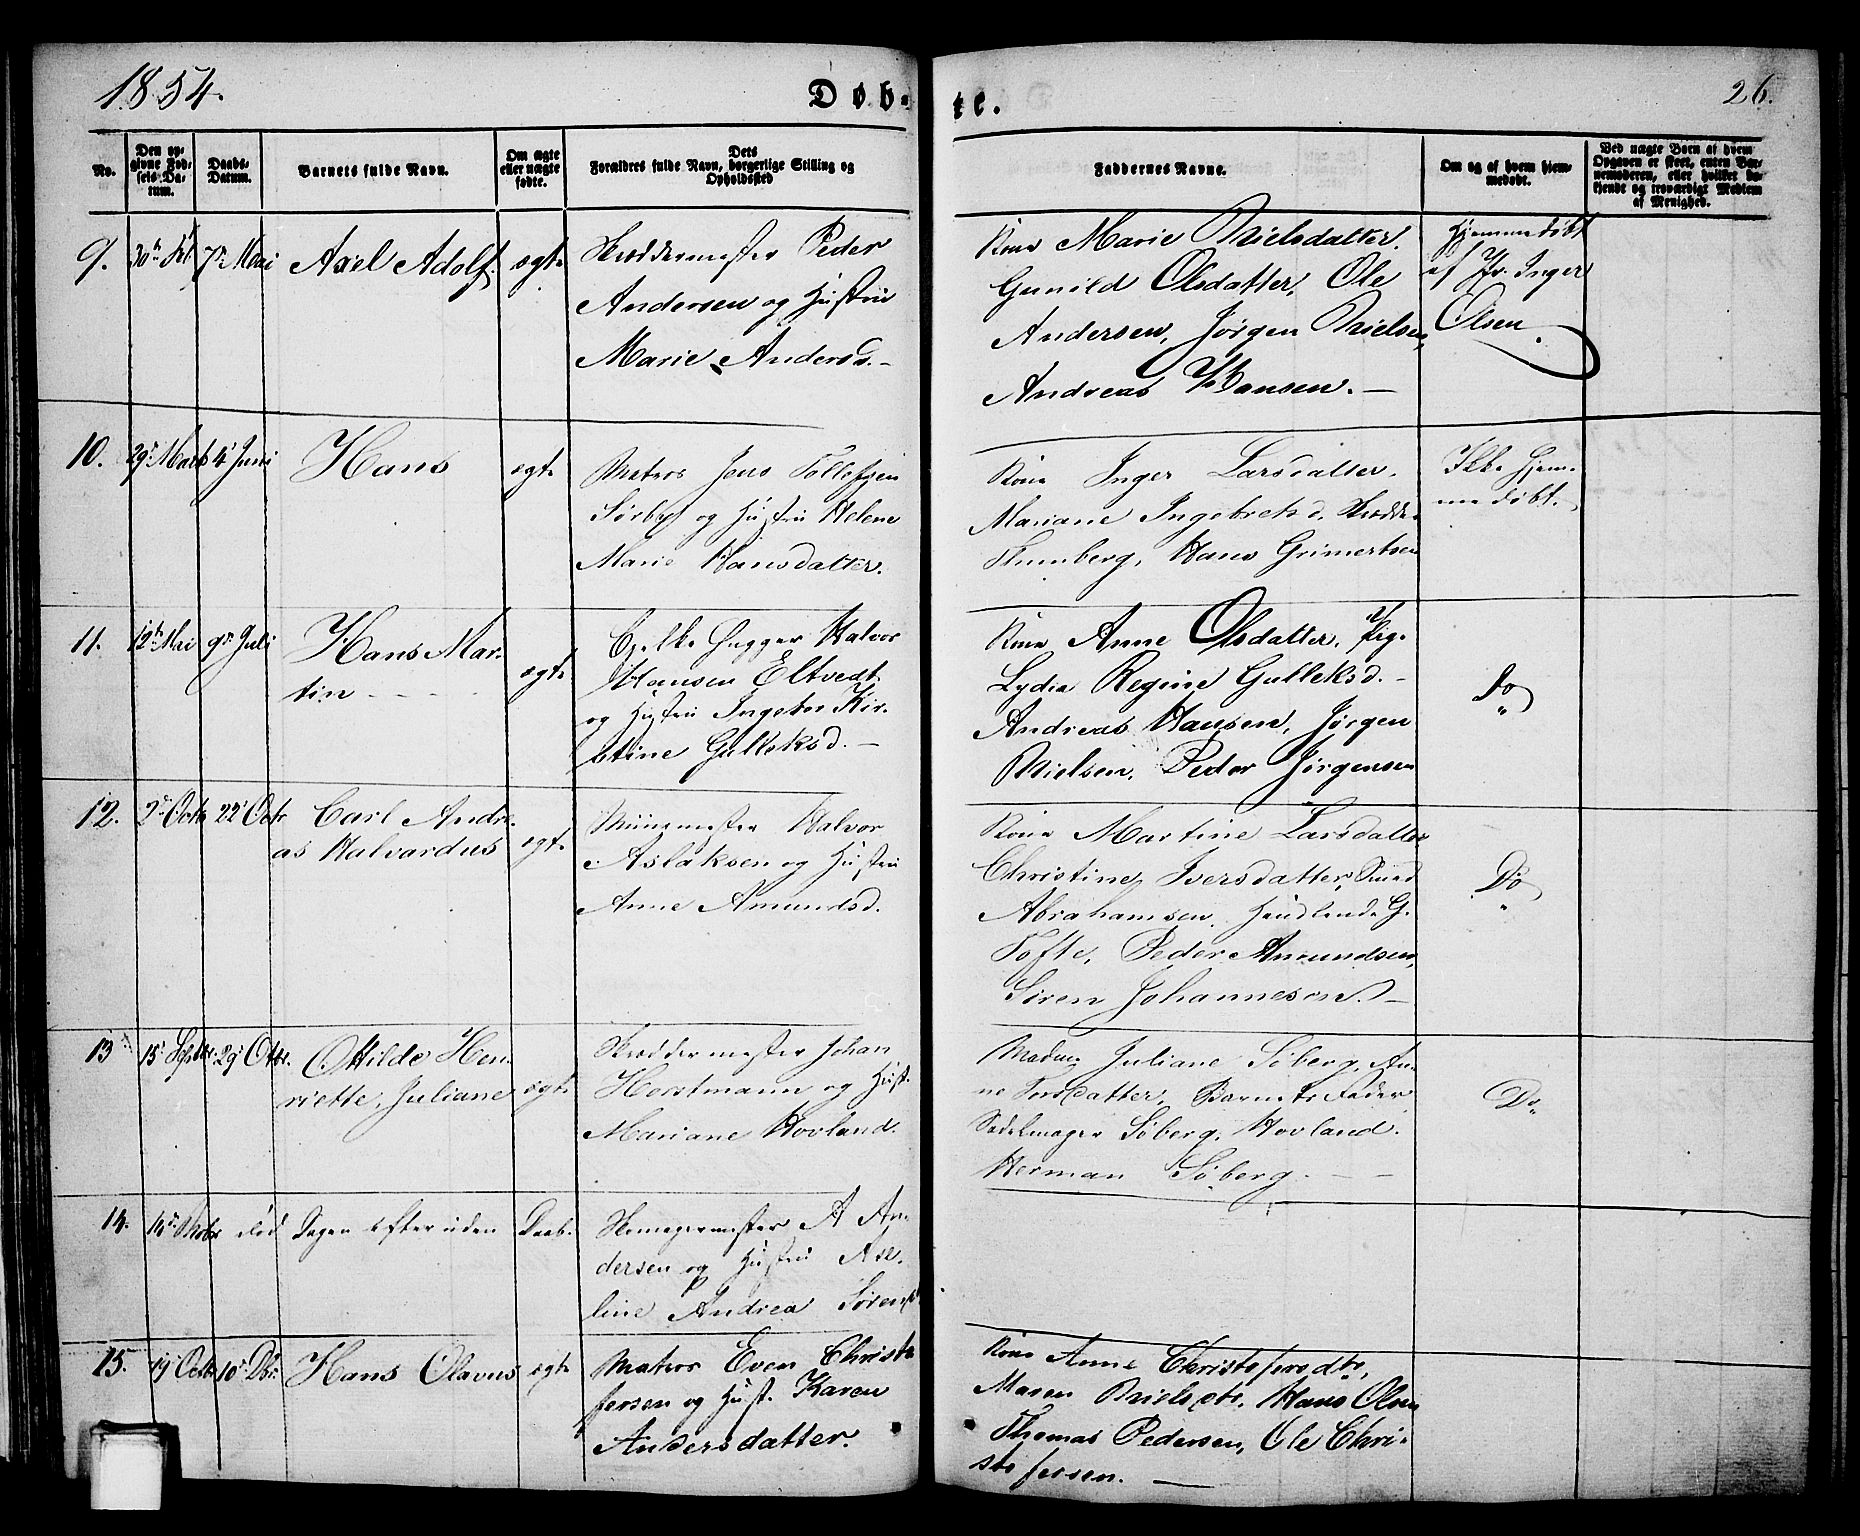 1854.
Døb-
te.
26.
No.
Den op-
givne Fød-
sels Da-
tum.
Daabs-
Datum.
Barnets fulde Navn.
Om ægte
eller uægte
fødte.
Dets
Forældres fulde Navn, borgerlige Stilling og
Opholdssted
Faddernes Navne.
Om og af hvem hjem-
medøbt.
Ved uægte Børn af hvem
Opgaven er skeet, enten Bar-
nemoderen, eller hvilket be-
kjendt og troværdigt Medlem
af Menighed.
9.
7de Mai
Axel Adolf.
ægte
Skræddermester Peder
Andersen og Hustru
Marie Andersd. -
Kone Marie Nielsdatter.
Gunild Olsdatter, Ole
Andersen, Jørgen Nielsen,
Andreas Hansen. -
Hjemmedøbt
af Inger
Olsen.
10.
29 Marts
4 Juni
Hans
ægte
Matros Jens Tollefsen
Sørby og Hustru Helene
Marie Hansdatter.
Kone Inger Larsdatter.
Mariane Ingebretsd,
Hans Grimertsen
Ikke Hjem-
medøbt.
11.
12te Mai
9de Juli
Hans Mar-
tin
ægte
Halvor
Hansen Eltvedt
og Hustru Ingebor Kir-
stine Gulleksd. -
Kone Anne Olsdatter, Pig.
Lydia Regine Gulleksd. -
Andreas Hansen, Jørgen
Nielsen, Peder Jørgensen
Do
12.
2 Octb
22 Octr
Carl Andre-
as Halvardus
ægte
Halvor
Aslaksen og Hustru
Anne Amundsd.
Kone Martine Larsdatter
Christine Iversdatter,
Abrahamsen, Handlende G.
Tofte, Peder Amundsen,
Søren Johannesen. -
Do
13
15 Septbr
29 Otbr.
Otilde Hen-
riette, Juliane
ægte
Skræddermester Johan
Horstmann og Hust.
Mariane Hovland.
Madm Juliane Søberg, An-
ne Torsdatter, Barnets Fader,
Sadelmager Søberg, Hovland.
Herman Søberg.
Do
14.
død
Dagen efter uden
Daab.
Skomagermester A An-
dersen og Hustru Ase-
line Andrea Sørens
15.
19 Octb
10 Dbr.
Hans Olavus
ægte
Matros Even Christo
fersen og Hust. Karen
Andersdatter.
Kone Anne Christofersdtr,
Maren Nielsdtr, Hans Olsen
Thomas Pedersen, Ole Chri-
stofersen. -